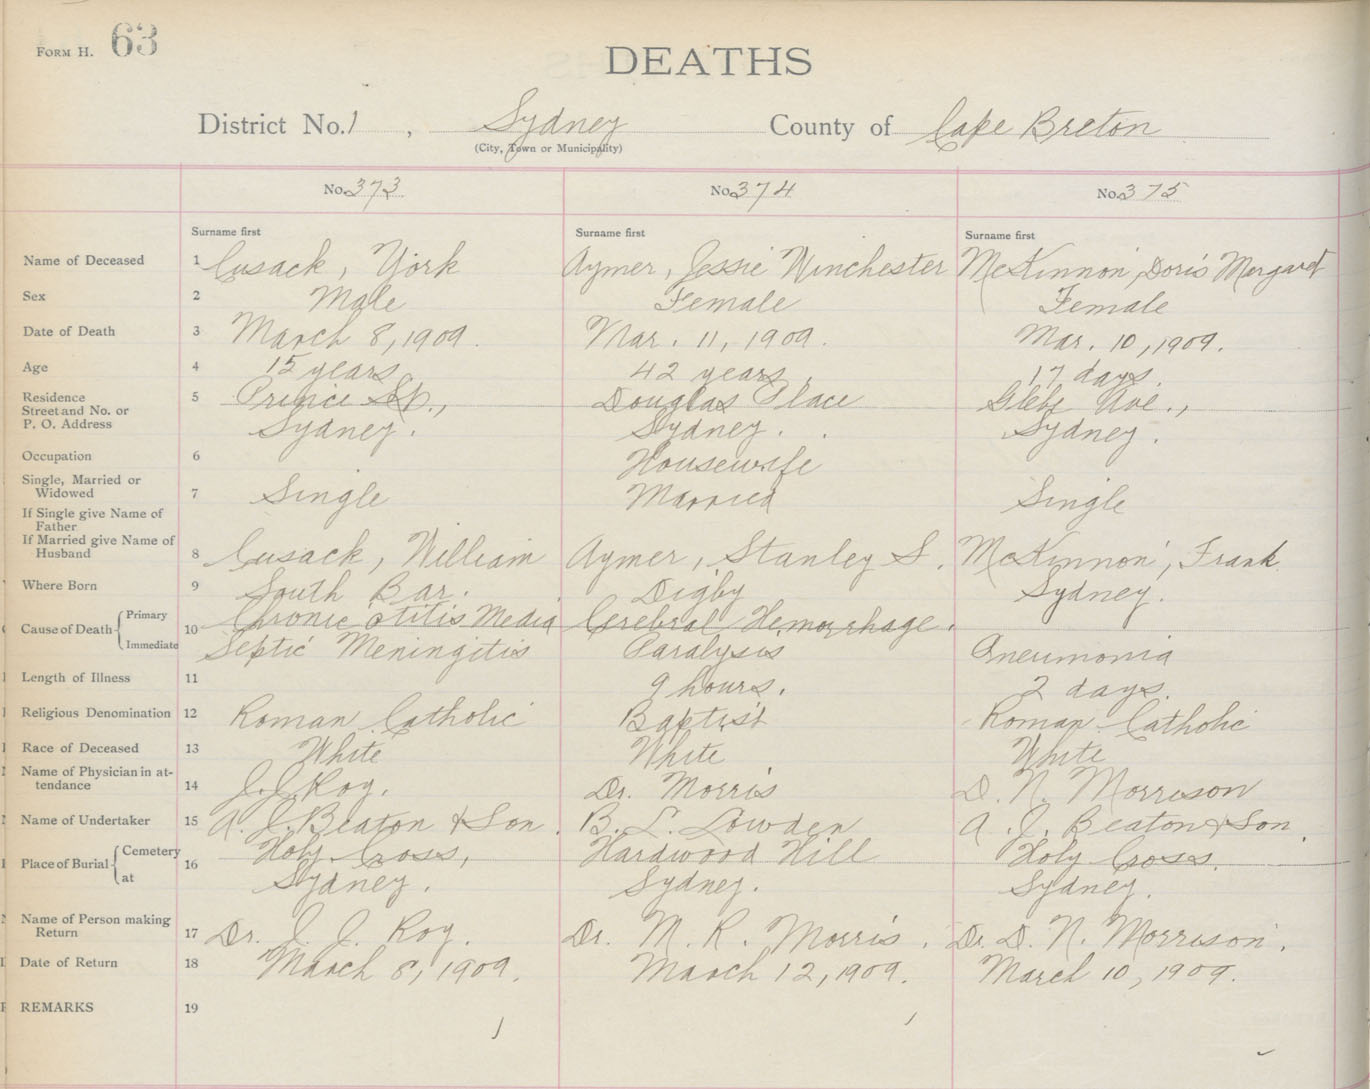 FORM H. 63
DEATHS
District No. 1, Sydney County of Cape Breton
(City, Town or Municipality)
No. 373 No. 374 No. 375
Surname first Surname first Surname first
Name of Deceased 1 Cusack, York Aymer, Jessie Winchester McKinnon, Doris Margaret
Sex 2 Male Female Female
Date of Death 3 March 8, 1909. Mar. 11, 1909. Mar. 10, 1909.
Age 4 15 years 42 years. 17 days.
Residence 5 Prince St., Douglas Place Glebe Ave.,
Street and No. or
P. O. Address Sydney. Sydney. Sydney.
Occupation 6 Housewife
Single, Married or
Widowed 7 Single Married Single
If Single give Name of
Father
If Married give Name of
Husband 8 Cusack, William Aymer, Stanley S. McKinnon, Frank
Where Born 9 South Bar. Digby Sydney.
Cause of Death Primary 10 Chronic otitis Media Cerebral Hemorrhage.
Immediate Septic Meningitis Paralysis Pneumonia
Length of Illness 11 9 hours. 2 days.
Religious Denomination 12 Roman Catholic Baptist Roman Catholic
Race of Deceased 13 White White White
Name of Physician in at-
tendance 14 J. J. Roy. Dr. Morris D. N. Morrison
Name of Undertaker 15 A. J. Beaton & Son. B. L. Lowden A. J. Beaton & Son.
Place of Burial Cemetery 16 Holy Cross, Hardwood Hill Holy Cross.
at Sydney. Sydney. Sydney.
Name of Person making
Return 17 Dr. J. J. Roy. Dr. M. R. Morris. Dr. D. N. Morrison.
Date of Return 18 March 8, 1909. March 12, 1909. March 10, 1909.
REMARKS 19